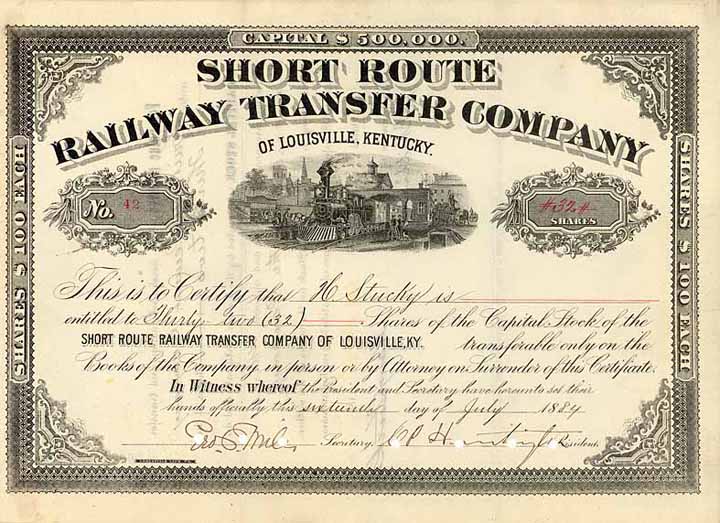 CAPITAL $ 500,000.
SHORT ROUTE
RAILWAY TRANSFER COMPANY
OF LOUISVILLE, KENTUCKY.
SHARES $ 100 EACH
No. 42
#32#
SHARES
SHARES $ 100 EACH
This is to Certify that H Stucky is
entitled to Thirty two (32) Shares of the Capital Stock of the
SHORT ROUTE RAILWAY TRANSFER COMPANY OF LOUISVILLE, KY. transferable only on the
Books of the Company in person or by Attorney on Surrender of this Certificate.
In Witness whereof the President and Secretary have hereunto set their
hands officially this sixteenth day of July 1884
Secretary. President.